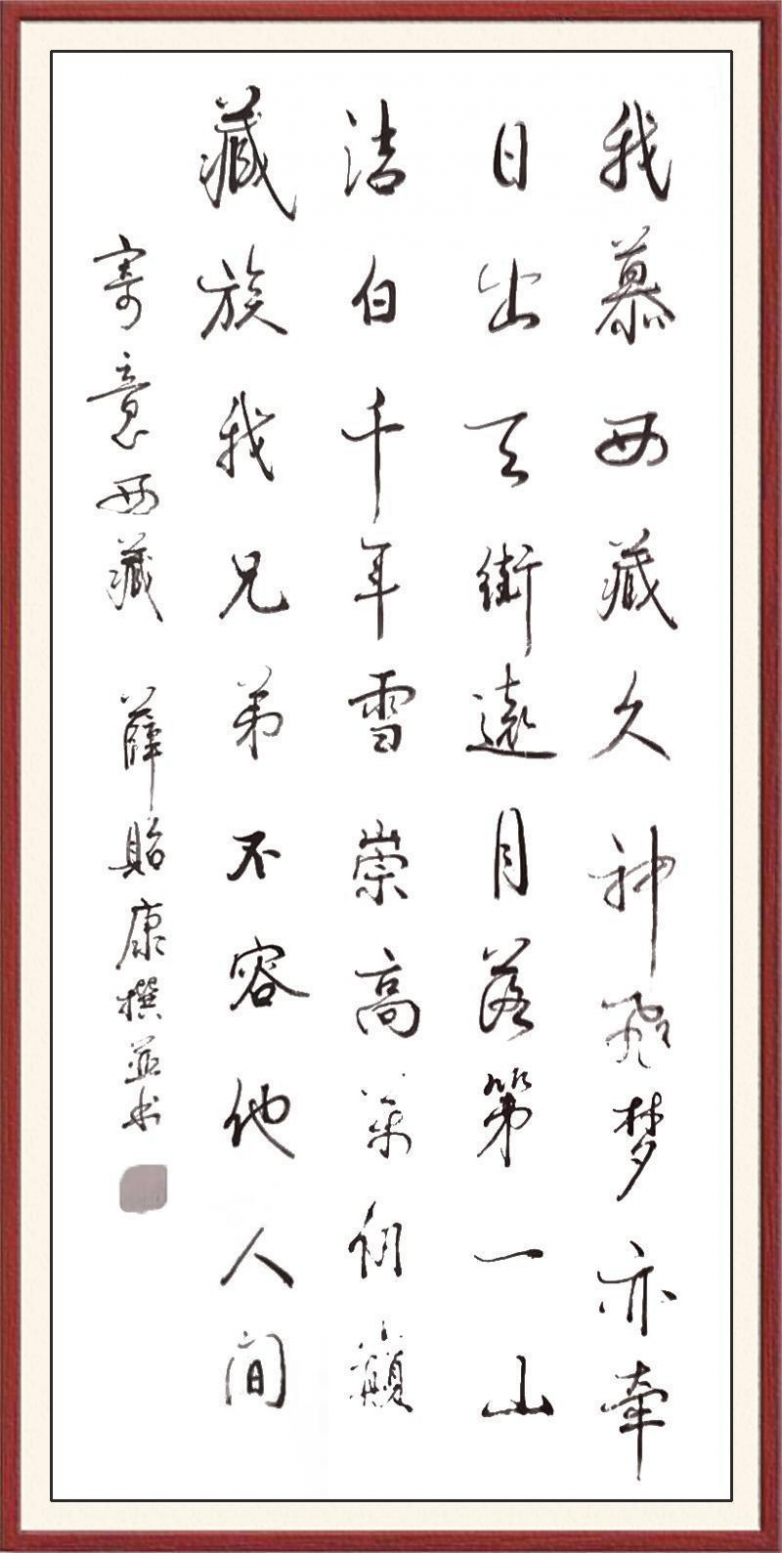 我慕西藏久神飛梦亦牵
日出天街遠月落第一山
洁白千年雪崇高萬仞巅
藏族我兄弟不容他人间
寄意西藏 薛貽康撰並书